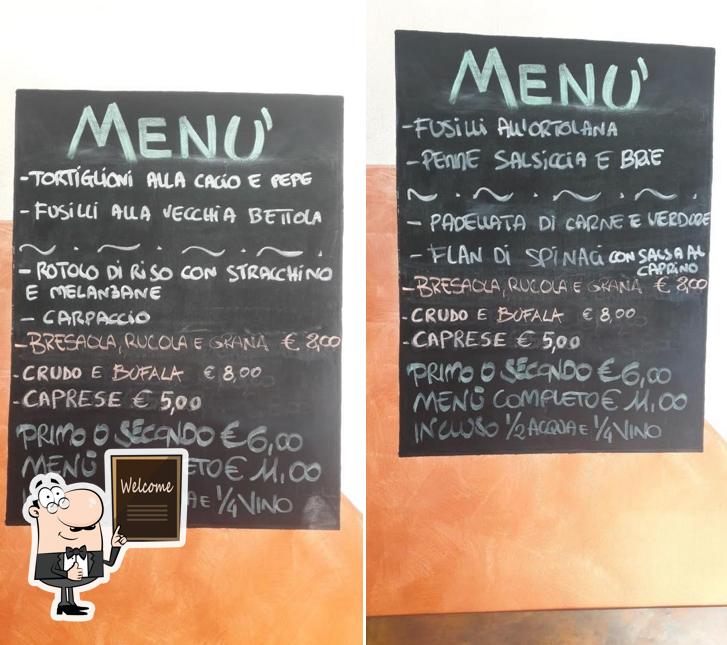 MENU'
-TORTIGLIONI ALLA CACIO E PEPE
-FUSILLI ALLA VECCHIA BETTOLA
-ROTOLO DI RISO CON STRACCHINO
E MELANZANE
- CARPACCIO
-BRESAOLA, RUCOLA E GRANA € 8,00
-CRUDO E BUFALA € 8,00
-CAPRESE € 5,00
PRIMO O SECONDO € 6,00
MENÙ ETO € 11,00
A E 1/4 VINO
Welcome
MENU'
-FUSILLI ALL'ORTOLANA
-PENNE SALSICCIA E BRIE
- PADELLATA DI CARNE E VERDURE
- FLAN DI SPINACI CON SALSA AL
CAPRINO
-BRESAOLA, RUCOLA E GRANA € 8,00
-CRUDO E BUFALA € 8,00
-CAPRESE € 5,00
PRIMO O SECONDO € 6,00
MENÙ COMPLETO € 11,00
INCLUSO 1/2 ACQUA E 1/4 VINO